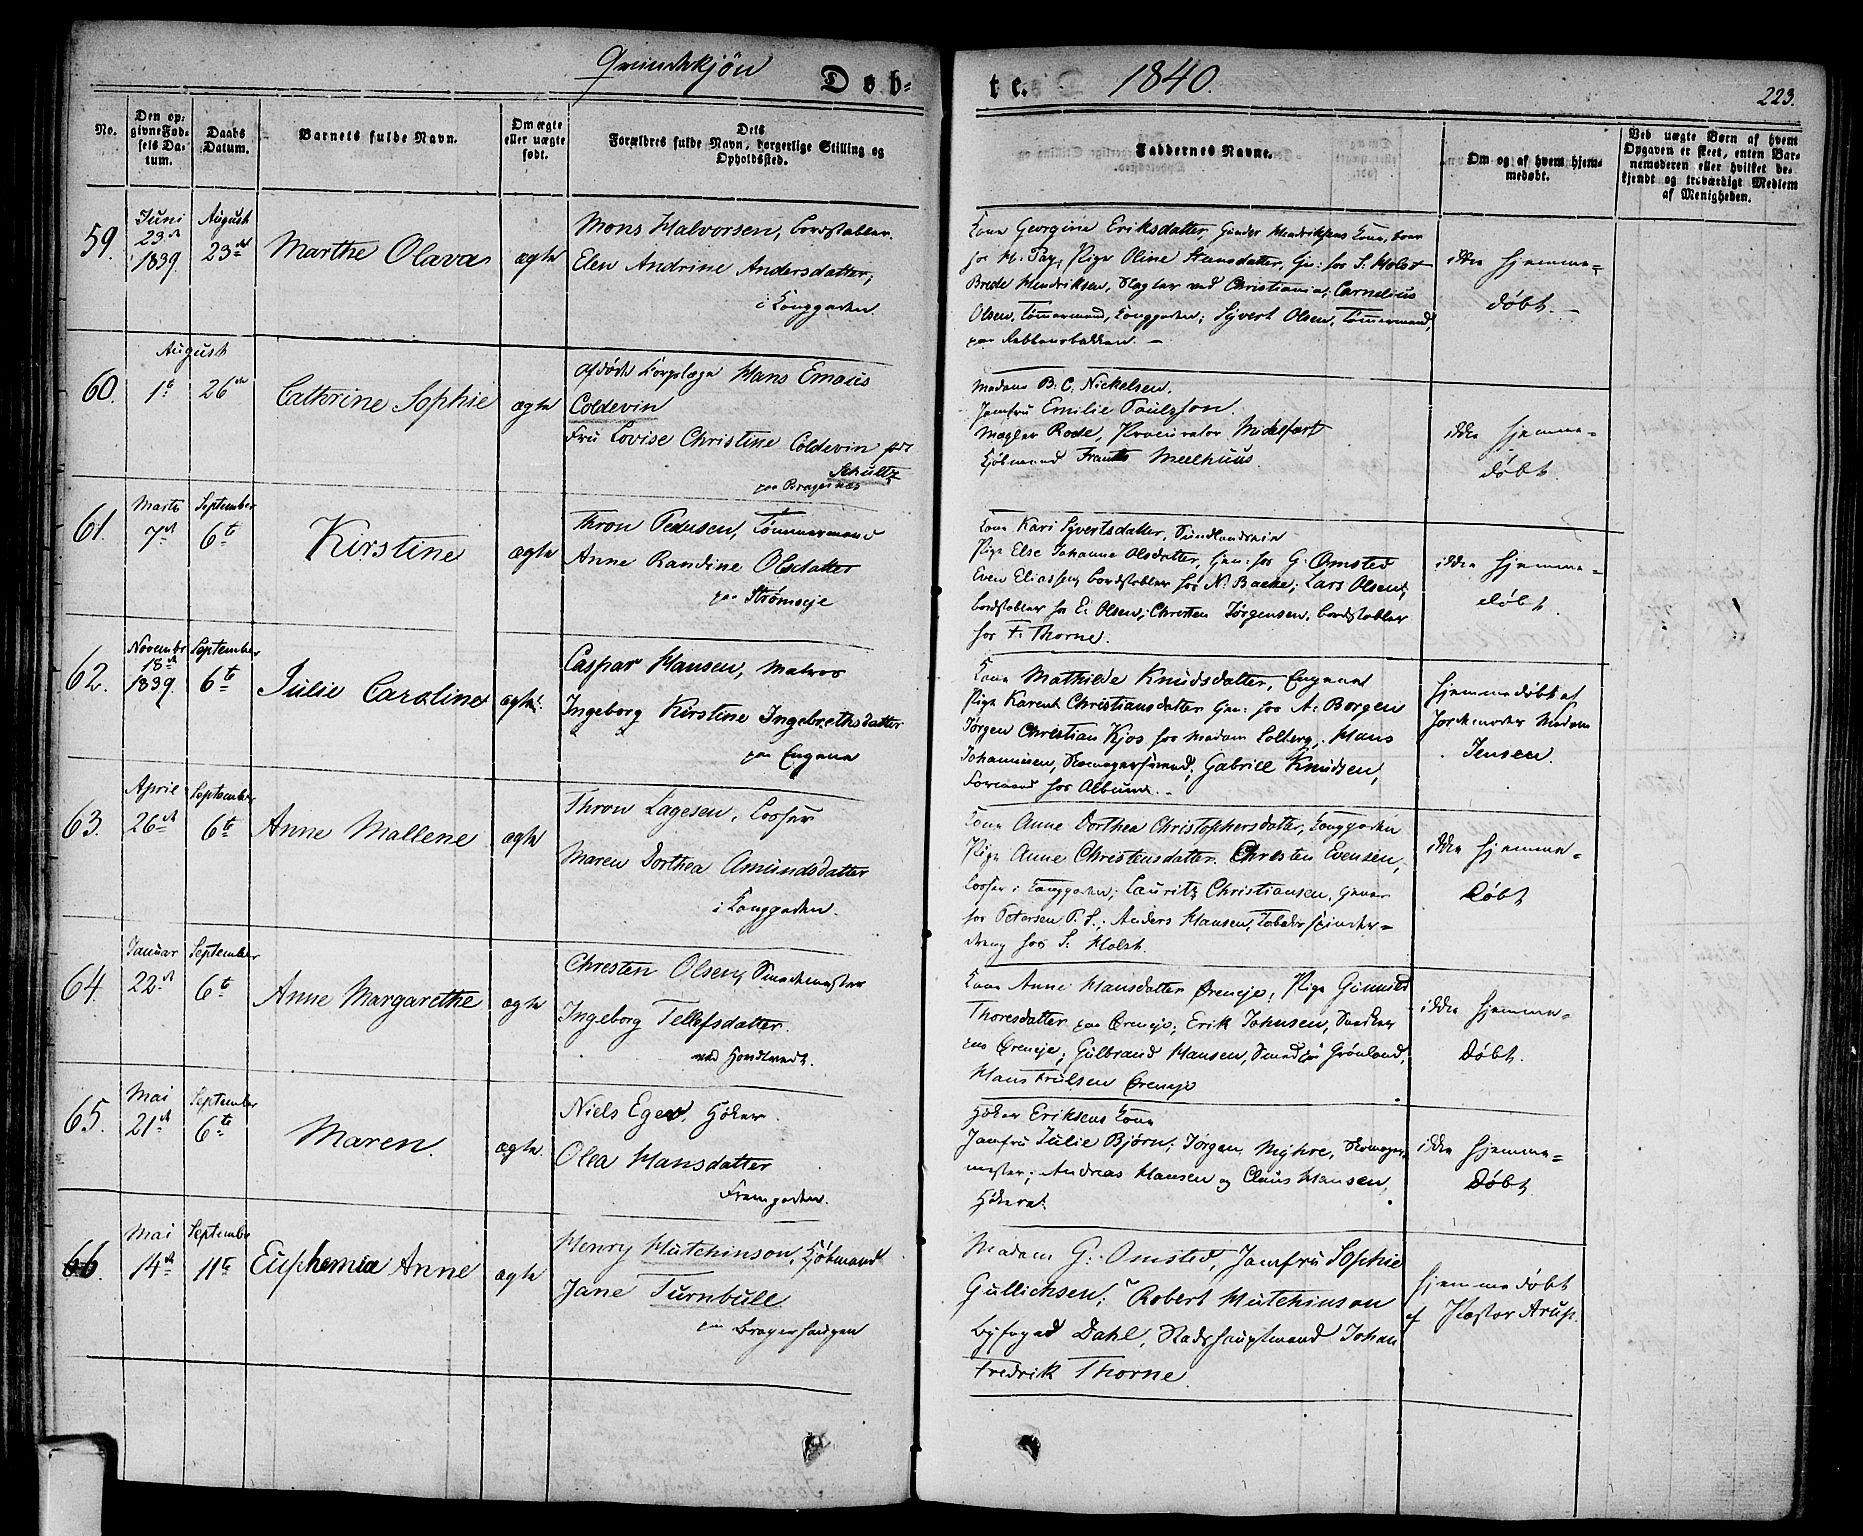 Qvindekjön
Døb-
te.
1840.
223.
No.
Den op-
givne Fød-
sels Da-
tum.
Daabs
Datum.
Barnets fulde Navn.
Om ægte
eller uægte
født.
Dets
Forældres fulde Navn, borgerlige Stilling og
Opholdssted.
Faddernes Navne.
Om og af hvem hjem-
medøbt.
Ved uægte Børn af hvem
Opgaven er skeet, enten Bar-
nemoderen eller hvilket be-
kjendt og troværdigt Medlem
af Menigheden.
59.
Juni
23de
1839.
August
23de
Marthe Olava
ægte
Mons Halvorsen, Bordstabler.
Elen Andrine Andersdatter,
i Konggaden
Kone Georgine Eriksdatter, Gunder Hendriksens Kone,
for H. Fay; Pige Oline Hansdatter, Gj: hos S. Holst
Brede Hendriksen, Slagter ved Christiania; Carnelius
Olsen, Tømmermand, Konggaden; Syvert Olsen, Tømmermand,
paa
ikke hjemme-
døbt.
60.
August
1te
26de
Cathrine Sophie
ægte
afdøde Korpslæge Hans Emaus
Coldevin
Fru Lovise Christine Coldevin fød
Schultz
paa Bragernæs
Madam B. C. Nickelsen.
Jomfru Emilie Paulsson.
Mægler Rode, Procurator Midelfart
Kjøbmand Frants Meelhuus.
ikke hjemme-
døbt.
61.
Marts
7de
September
6te
Kirstine
ægte
Thron Pedersen, Tømmermand
Anne Randine Olsdatter
paa Strømseje
Kone Kari Syvertsdatter, Sundlandseie
Pige Else Johanne Olsdatter, Gjen: hos G. Omsted
Even Eliassen bordstabler hos N. Bache; Lars Olsen,
bordstabler hos E. Olsen; Christen Jørgensen, bordstabler
hos F. Thorne.
ikke hjemme-
døbt.
62.
Novembr
18de
1839.
September
6te
Julie Caroline
ægte
Caspar Hansen, Matros
Ingeborg Kirstine Ingebrethsdatter
paa Engene
Kone Mathilde Knudsdatter, Engene
Pige Karen Christiansdatter Gjen: hos A. Borgen
Jørgen Christian Kjos hos Madam Solberg, Hans
Johannesen, Skomagersvend; Gabriel Knudsen,
Formand hos Album.
hjemmedøbt af
Jordemoder Madam
Jensen.
63.
April
26de
September
6te
Anne Mallene
ægte
Thron Lagesen, Losser
Maren Dorthea Amundsdatter
i Konggaden.
Kone Anne Dorthea Christophersdatter, Konggaden
Pige Anne Christensdatter. Christen Evensen,
Losser i Konggaden; Lauritz Christiansen, Gjener
hos Petersen P. S.; Anders Hansen, Tobaksspinder-
dreng hos S. Holst.
ikke hjemme-
døbt
64.
Januar
22de
September
6te
Anne Margarethe
ægte
Christen Olsen, Smedemester
Ingeborg Tellefsdatter.
ved
Kone Anne Hansdatter Øreneje; Pige Gunnild
Thoresdatter paa Øreneje; Erik Johnsen, Snedker
paa Øreneje; Gulbrand Hansen, Smed paa Grønland,
Hans Trulsen Øreneje
ikke hjemme-
døbt.
65.
Mai
21de
September
6te
Maren.
ægte.
Niels Eger, Høker.
Olea Hansdatter
Fremgaden.
Høker Eriksens Kone
Jomfru Julie Bjørn; Jørgen Myhre, Skomager-
mester; Andreas Hansen og Claus Hansen,
Høkere.
ikke hjemme-
døbt
66.
Mai
14de
September
11te
Euphemia Anne
ægte
Henry Hutchinson, Kjøbmand
Jane Turnbull
paa Bragerhaugen
Madam G. Omsted, Jomfru Sophie
Gullichsen; Robert Hutchinson
Byfoged Dahl, Stadshauptmand Johan
Fredrik Thorne.
hjemmedøbt
af Pastor Arup.